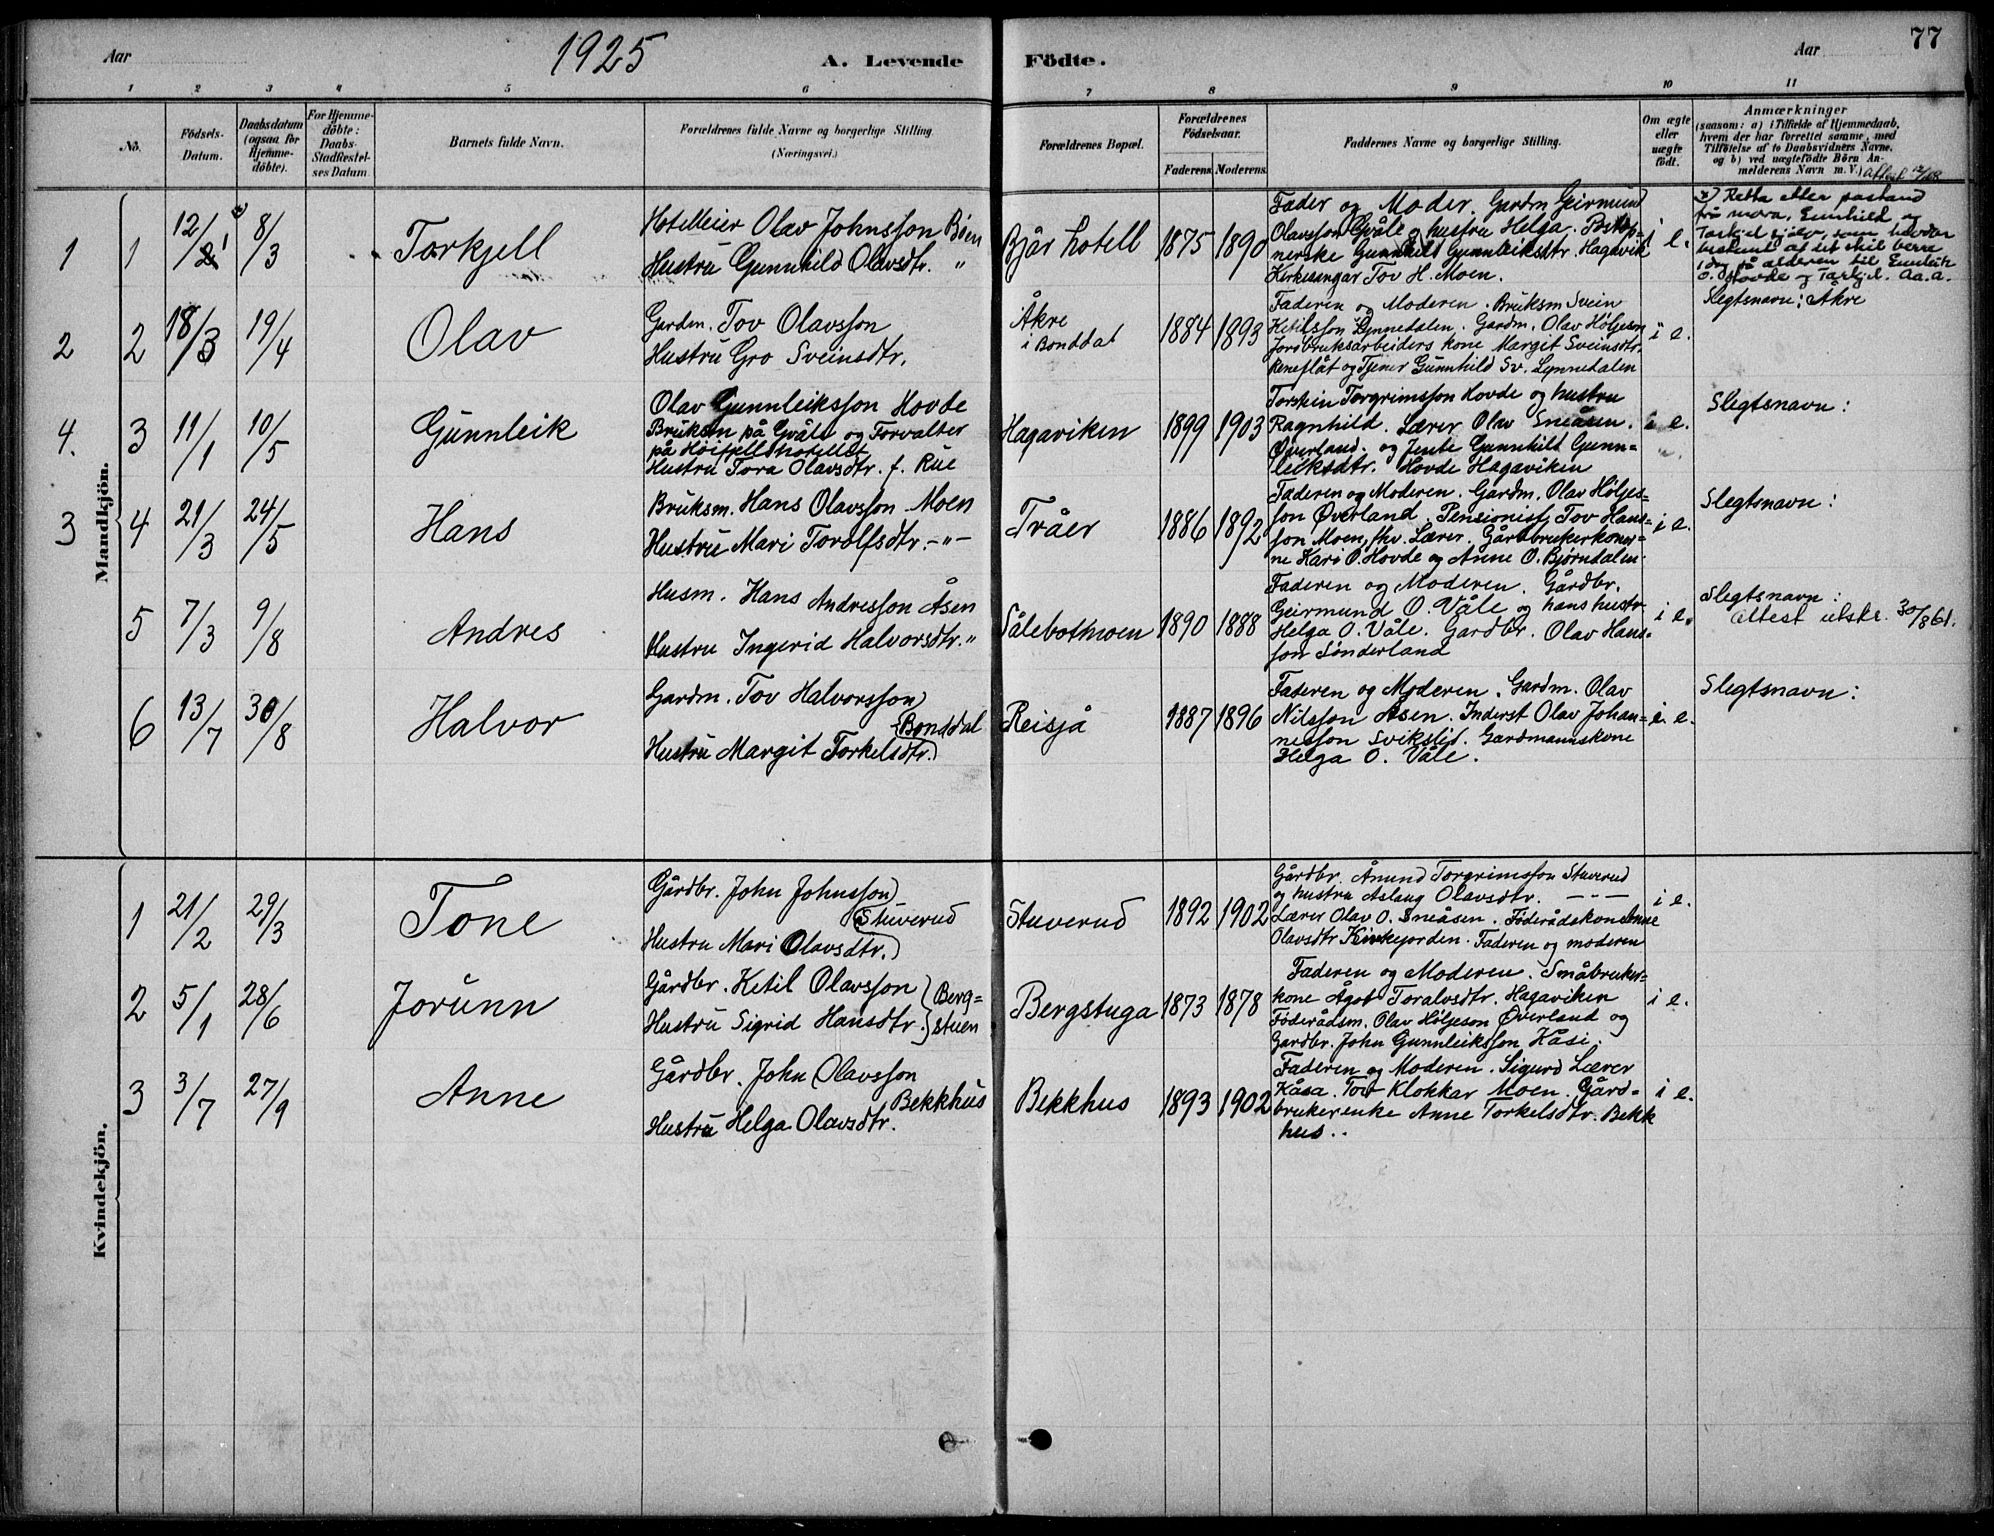 Aar
1925
A. Levende
Födte.
Aar
77
1 2 3 4 5 6 7 8 9 10 11
No.
Födsels-Datum.
Daabsdatum (ogsaa for Hjemme-döbte).
For Hjemme-döbte: Daabs-Stadfæstel-ses Datum
Barnets fulde Navn.
Forældrenes fulde Navne og borgerlige Stilling.
(Næringsvei.)
Forældrenes Bopæl.
Forældrenes Födselsaar.
Faderens. Moderens.
Faddernes Navne og borgerlige Stilling.
Om ægte eller uægte födt.
Anmærkninger
(saasom: a) i Tilfælde af Hjemmedaab,
hvem der har forrettet samme, med
Tilföielse af to Daabsvidners Navne,
og b) ved uægtefödte Börn An-
melderens Navn m. V.)
Mandkjön.
1 1 12/1 8/3
Torkjell
Hotelleier Olav Johnsson Bøen
Hustru Gunnhild Olavsdtr. "
Bjår hotell 1875 1890
Fader og Moder. Gardm Geirmund
Olavsson Gvåle og hustru Helga. Poståp-
nerske Gunnhild Gunnleiksdtr. Hagavik
Kirkesanger Tov H. Moen.
i e.
x) Retta etter påstand
frå mora, Gunhild og
Tarkjel sjølv, som hevdar
bestemt at det skil berre
1 dag på alderen til Gunleik
O. Hovde og Tarkjel. Aa.A.
2 2 18/3 19/4
Olav
Gardm. Tov Olavsson
Hustru Gro Sveinsdtr.
Åkre
i Bonddal
1884 1893
Faderen og Moderen. Bruksm Svein
Ketilsson Lynnedalen. Gardm. Olav Høljeson
Jordbruksarbeiders kone Margit Sveinsdtr.
Reneflåt og Tjener Gunnhild Sv. Lynnedalen
i e.
Slegtsnavn: Åkre
4. 3 11/1 10/5
Gunnleik
Olav Gunnleiksson Hovde
Bruksm på Gvåle og Forvalter
på Høifjellshotellet
Hustru Tora Olavsdtr. f. Rue
Hagaviken 1899 1903
Torstein Torgrimsson Hovde og hustru
Ragnhild. Lærer Olav Sneåsen.
Øverland. og Jente Gunnhild Gunn=
leiksdtr. Hovde Hagaviken
i e.
Slegtsnavn:
3 4 21/3 24/5
Hans
Bruksm. Hans Olavsson Moen
Hustru Mari Torolfsdtr. -"-
Tråer 1886 1892
Faderen og Moderen. Gardm. Olav Høljes=
son Øverland. Pensionist Tov Hans=
son Moen, fhv. Lærer. Gårdbrukerkoner=
ne Kari O. Hovde og Anne O. Bjørndalen.
i e.
Slegtsnavn:
5 7/3 9/8
Andres
Husm. Hans Andresson Åsen
Hustru Ingerid Halvorsdtr. "
Sålebotmoen 1890 1888
Faderen og Moderen. Gårdbr.
Geirmund O. Våle og hans hustr.
Helga O. Våle. Gardbr. Olav Hans=
son Sønderland
i e.
Slegtsnavn:
Attest utskr. 30/8 61.
6 13/7 30/8
Halvor
Gardm. Tov Halvorsson
Bonddal
Hustru Margit Torkelsdtr.
Reisjå 1887 1896
Faderen og Moderen. Gardm. Olav
Nilsson Åsen. Inderst Olav Johan=
nesson Svikslid. Gardmannskone
Helga O. Våle.
i e.
Slegtsnavn:
Kvindekjön.
1 21/2 29/3
Tone
Gårdbr. John Johnsson
Stuverud
Hustru Mari Olavsdtr.
Stuverud 1892 1902
Gårdbr. Åmund Torgrimsson Stuverud
og hustru Aslaug Olavsdtr. — — —
Lærer Olav O. Sneåsen. Föderådskone Anne
Olavsdtr Kirkejorden. Faderen og moderen
i e.
2 5/1 28/6
Jorunn
Gårdbr. Ketil Olavsson
Berg=
Hustru Sigrid Hansdtr.
stuen
Bergstuga 1873 1878
Faderen og Moderen. Småbruker=
kone Ågot Toralvsdtr. Hagaviken
Föderådsm. Olav Høljeson Øverland og
Gardbr. John Gunnleiksson Kåsi.
i e.
3 3/7 27/9
Anne
Gårdbr. John Olavsson
Bekkhus
Hustru Helga Olavsdtr.
Bekkhus 1893 1902
Faderen og Moderen. Sigurd Lærer
Kåsa. Tov Klokkar Moen. Gård=
brukerenke Anne Torkelsdtr. Bekk
hus..
i e.